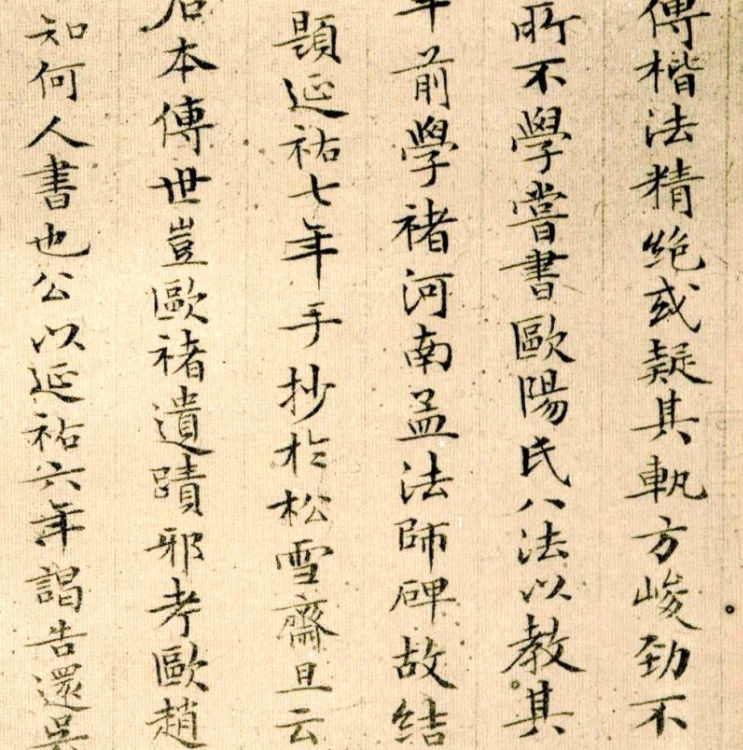 傅楷法精絶或疑其軌方峻勁不
所不學嘗書歐陽氏八法以教其
年前學褚河南孟法師碑故結
題延祐七年手抄於松雪齋且云
石本傳世豈歐褚遺蹟邪考歐趙
知何人書也公以延祐六年謁告還吳